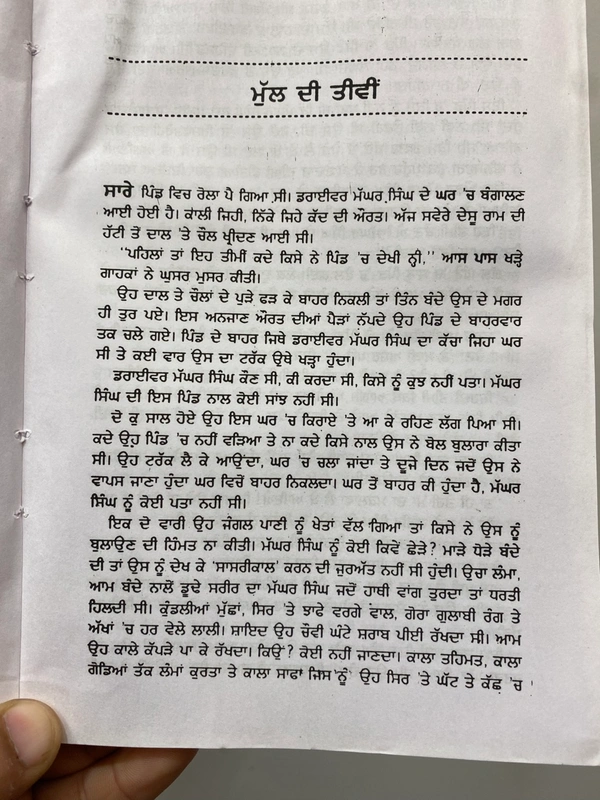 ਮੁੱਲ ਦੀ ਤੀਵੀਂ
ਸਾਰੇ ਪਿੰਡ ਵਿਚ ਰੋਲਾ ਪੈ ਗਿਆ ਸੀ। ਡਰਾਈਵਰ ਮੱਘਰ ਸਿੰਘ ਦੇ ਘਰ 'ਚ ਬੰਗਾਲਣ
ਆਈ ਹੋਈ ਹੈ। ਕਾਲੀ ਜਿਹੀ, ਨਿੱਕੇ ਜਿਹੇ ਕੱਦ ਦੀ ਔਰਤ। ਅੱਜ ਸਵੇਰੇ ਦੇਸੂ ਰਾਮ ਦੀ
ਹੱਟੀ ਤੋਂ ਦਾਲ 'ਤੇ ਚੌਲ ਖ੍ਰੀਦਣ ਆਈ ਸੀ।
''ਪਹਿਲਾਂ ਤਾਂ ਇਹ ਤੀਮੀਂ ਕਦੇ ਕਿਸੇ ਨੇ ਪਿੰਡ 'ਚ ਦੇਖੀ ਨ੍ਹੀ,'' ਆਸ ਪਾਸ ਖੜ੍ਹੇ
ਗਾਹਕਾਂ ਨੇ ਘੁਸਰ ਮੁਸਰ ਕੀਤੀ।
ਉਹ ਦਾਲ ਤੇ ਚੌਲਾਂ ਦੇ ਪੁੜੇ ਫੜ ਕੇ ਬਾਹਰ ਨਿਕਲੀ ਤਾਂ ਤਿੰਨ ਬੰਦੇ ਉਸ ਦੇ ਮਗਰ
ਹੀ ਤੁਰ ਪਏ। ਇਸ ਅਨਜਾਣ ਔਰਤ ਦੀਆਂ ਪੈੜਾਂ ਨੱਪਦੇ ਉਹ ਪਿੰਡ ਦੇ ਬਾਹਰਵਾਰ
ਤਕ ਚਲੇ ਗਏ। ਪਿੰਡ ਦੇ ਬਾਹਰ ਜਿਥੇ ਡਰਾਈਵਰ ਮੱਘਰ ਸਿੰਘ ਦਾ ਕੱਚਾ ਜਿਹਾ ਘਰ
ਸੀ ਤੇ ਕਈ ਵਾਰ ਉਸ ਦਾ ਟਰੱਕ ਉਥੇ ਖੜ੍ਹਾ ਹੁੰਦਾ।
ਡਰਾਈਵਰ ਮੱਘਰ ਸਿੰਘ ਕੌਣ ਸੀ, ਕੀ ਕਰਦਾ ਸੀ, ਕਿਸੇ ਨੂੰ ਕੁਝ ਨਹੀਂ ਪਤਾ। ਮੱਘਰ
ਸਿੰਘ ਦੀ ਇਸ ਪਿੰਡ ਨਾਲ ਕੋਈ ਸਾਂਝ ਨਹੀਂ ਸੀ।
ਦੋ ਕੁ ਸਾਲ ਹੋਏ ਉਹ ਇਸ ਘਰ 'ਚ ਕਿਰਾਏ 'ਤੇ ਆ ਕੇ ਰਹਿਣ ਲੱਗ ਪਿਆ ਸੀ।
ਕਦੇ ਉਹ ਪਿੰਡ 'ਚ ਨਹੀਂ ਵੜਿਆ ਤੇ ਨਾ ਕਦੇ ਕਿਸੇ ਨਾਲ ਉਸ ਨੇ ਬੋਲ ਬੁਲਾਰਾ ਕੀਤਾ
ਸੀ। ਉਹ ਟਰੱਕ ਲੈ ਕੇ ਆਉਂਦਾ, ਘਰ 'ਚ ਚਲਾ ਜਾਂਦਾ ਤੇ ਦੂਜੇ ਦਿਨ ਜਦੋਂ ਉਸ ਨੇ
ਵਾਪਸ ਜਾਣਾ ਹੁੰਦਾ ਘਰ ਵਿਚੋਂ ਬਾਹਰ ਨਿਕਲਦਾ। ਘਰ ਤੋਂ ਬਾਹਰ ਕੀ ਹੁੰਦਾ ਹੈ, ਮੱਘਰ
ਸਿੰਘ ਨੂੰ ਕੋਈ ਪਤਾ ਨਹੀਂ ਸੀ।
ਇਕ ਦੋ ਵਾਰੀ ਉਹ ਜੰਗਲ ਪਾਣੀ ਨੂੰ ਖੇਤਾਂ ਵੱਲ ਗਿਆ ਤਾਂ ਕਿਸੇ ਨੇ ਉਸ ਨੂੰ
ਬੁਲਾਉਣ ਦੀ ਹਿੰਮਤ ਨਾ ਕੀਤੀ। ਮੱਘਰ ਸਿੰਘ ਨੂੰ ਕੋਈ ਕਿਵੇਂ ਛੇੜੇ? ਮਾੜੇ ਧੋੜੇ ਬੰਦੇ
ਦੀ ਤਾਂ ਉਸ ਨੂੰ ਦੇਖ ਕੇ 'ਸਾਸਰੀਕਾਲ' ਕਰਨ ਦੀ ਜੁਰਅੱਤ ਨਹੀਂ ਸੀ ਹੁੰਦੀ। ਉਚਾ ਲੰਮਾ,
ਆਮ ਬੰਦੇ ਨਾਲੋਂ ਡੂਢੇ ਸਰੀਰ ਦਾ ਮੱਘਰ ਸਿੰਘ ਜਦੋਂ ਹਾਥੀ ਵਾਂਗ ਤੁਰਦਾ ਤਾਂ ਧਰਤੀ
ਹਿਲਦੀ ਸੀ। ਕੁੰਡਲੀਆਂ ਮੁੱਛਾਂ, ਸਿਰ 'ਤੇ ਝਾਫੇ ਵਰਗੇ ਵਾਲ, ਗੋਰਾ ਗੁਲਾਬੀ ਰੰਗ ਤੇ
ਅੱਖਾਂ 'ਚ ਹਰ ਵੇਲੇ ਲਾਲੀ। ਸ਼ਾਇਦ ਉਹ ਚੌਵੀ ਘੰਟੇ ਸ਼ਰਾਬ ਪੀਈ ਰੱਖਦਾ ਸੀ। ਆਮ
ਉਹ ਕਾਲੇ ਕੱਪੜੇ ਪਾ ਕੇ ਰੱਖਦਾ। ਕਿਉਂ? ਕੋਈ ਨਹੀਂ ਜਾਣਦਾ। ਕਾਲਾ ਤਹਿਮਤ, ਕਾਲਾ
ਗੋਡਿਆਂ ਤੱਕ ਲੰਮਾਂ ਕੁਰਤਾ ਤੇ ਕਾਲਾ ਸਾਫਾ ਜਿਸ ਨੂੰ ਉਹ ਸਿਰ 'ਤੇ ਘੱਟ ਤੇ ਕੱਛ 'ਚ